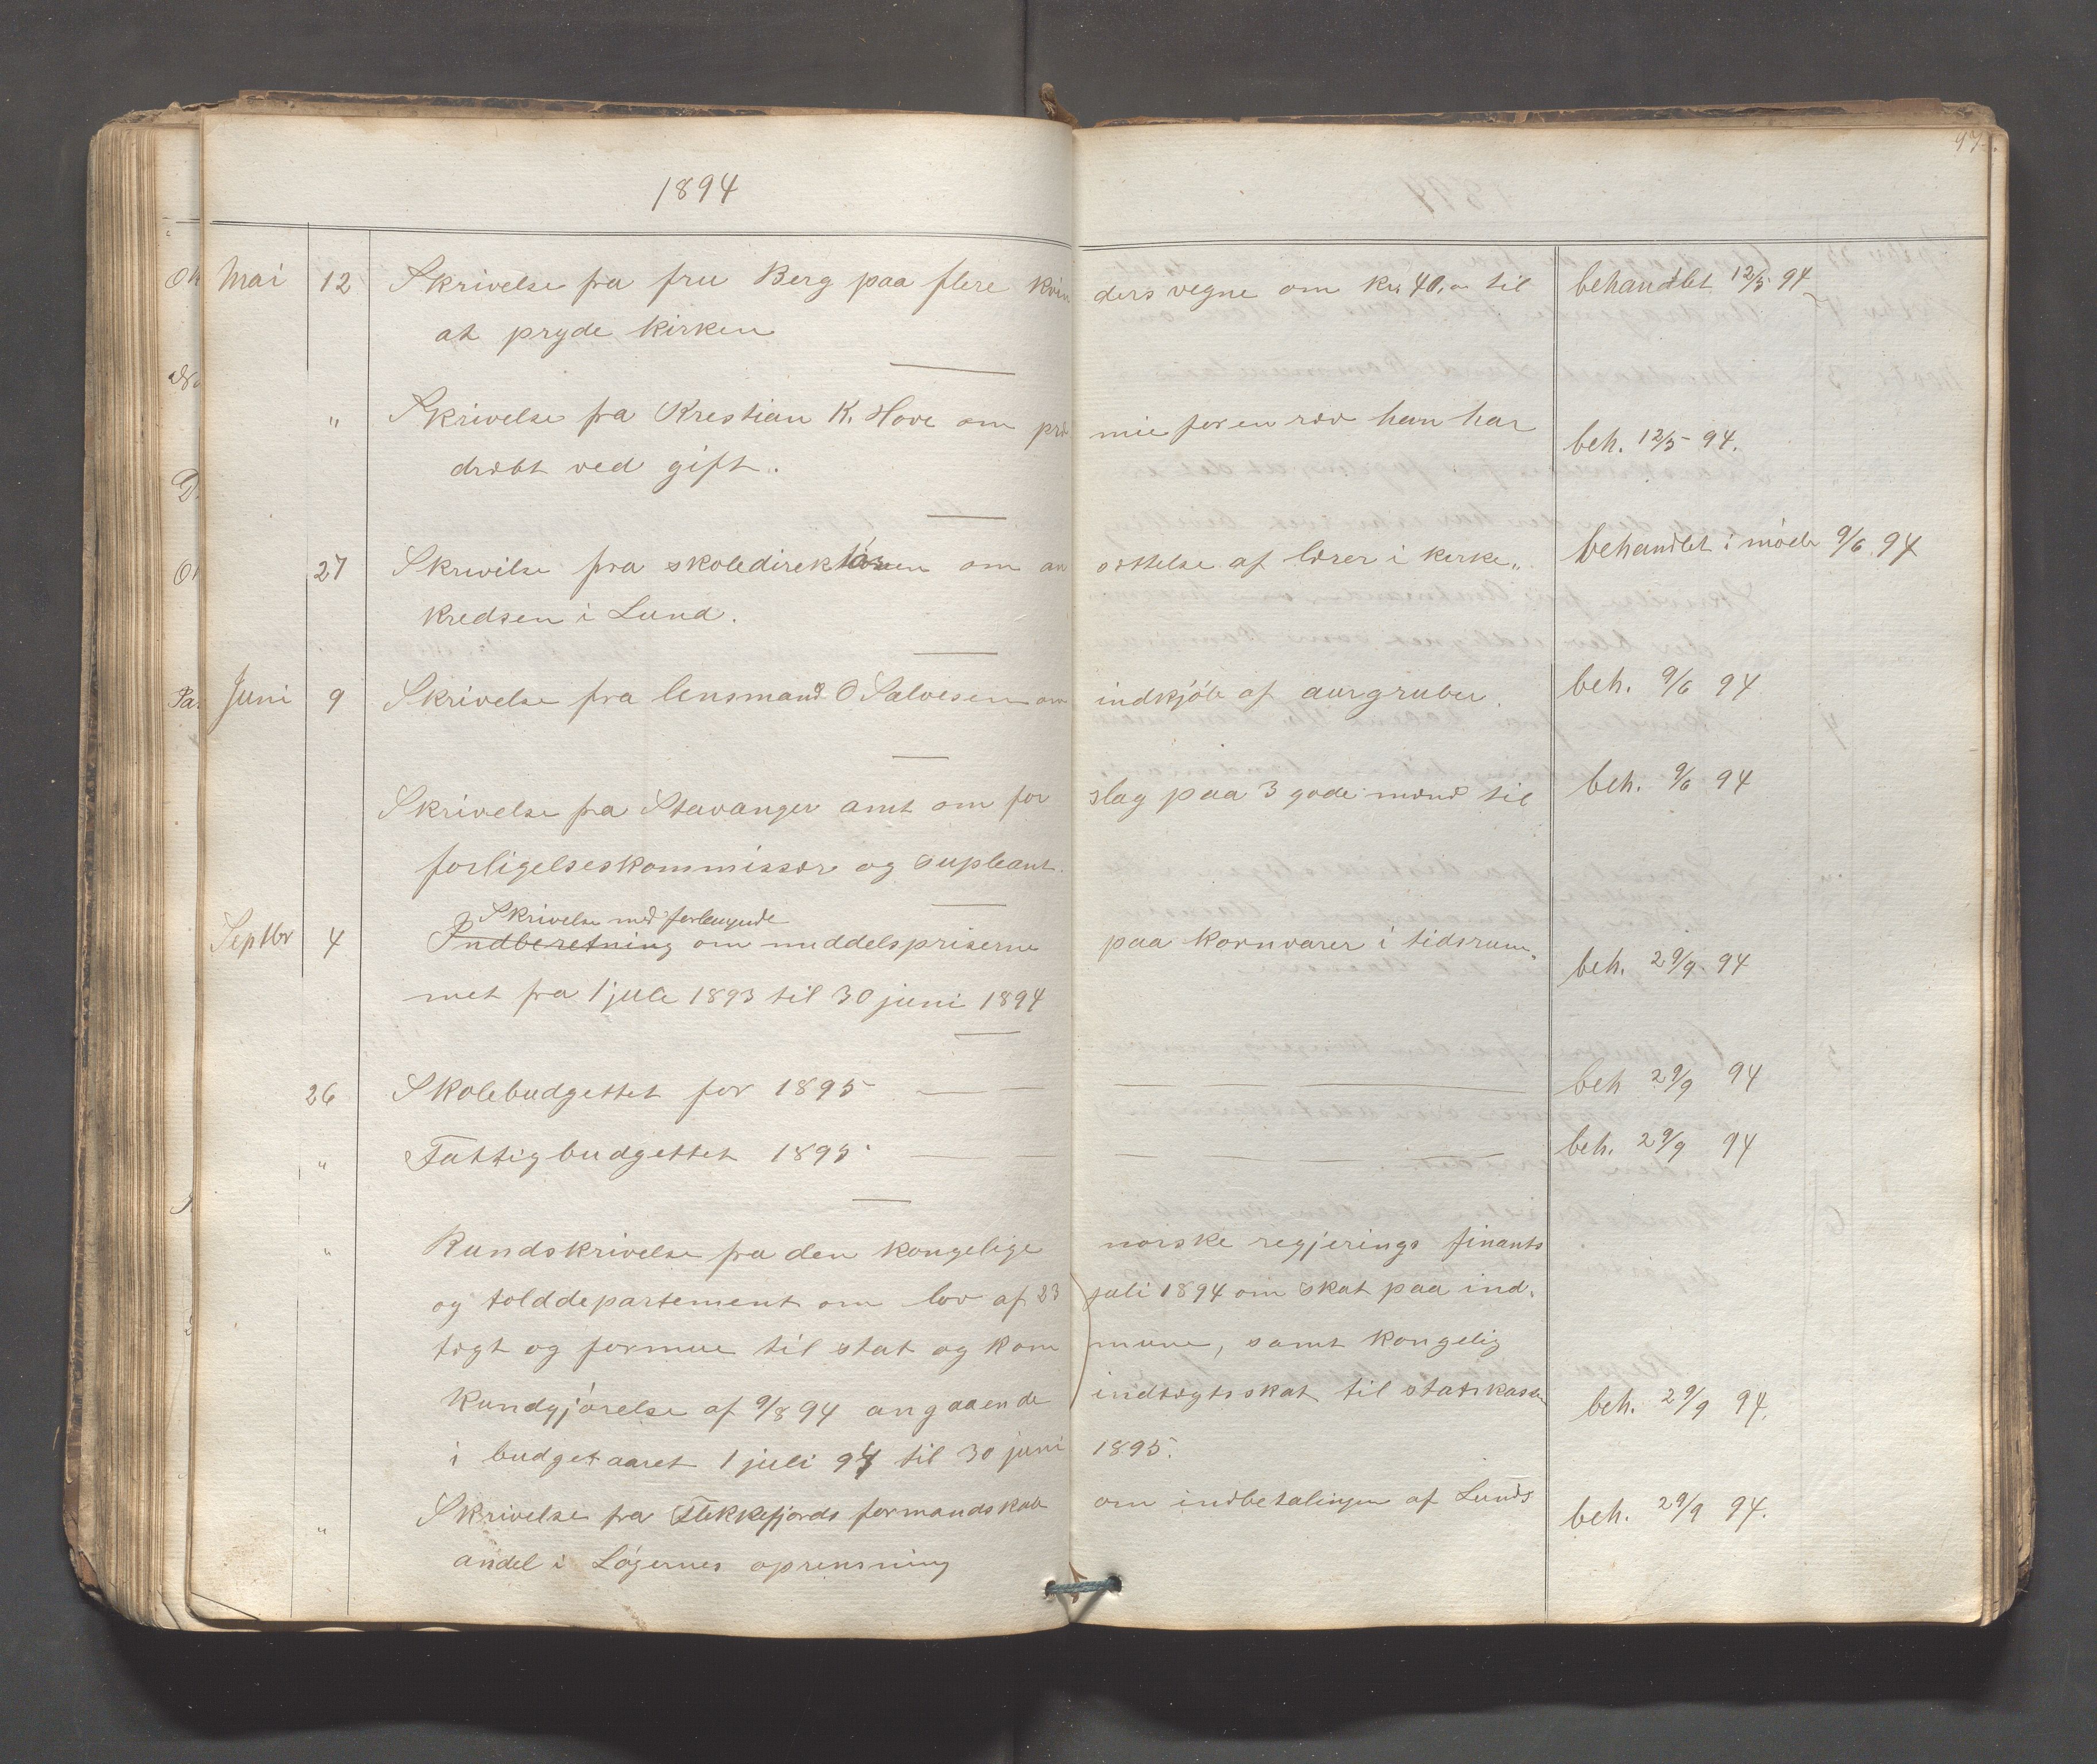 47.
1894
Mai 12 Skrivelse fra fru Berg paa flere kvin ders vegne om Kr 40,00 til behandlet 12/5 94
at pryde kirken
" Skrivelse fra Krestian K. Hove om præ mie for en ræv han har beh. 12/5 94.
dræbt ved gift.
27 Skrivelse fra skoledirektøren om an sættelse af lærer i kirke„ behandlet i møde 9/6 94
kredsen i Lund.
Juni 9 Skrivelse fra lensmand O Salvesen om indkjøb af aurgruber. beh. 9/6 94
Skrivelse fra Stavanger amt om for slag paa 3 gode mænd til beh. 9/6 94
forligelseskommissær og supleant.
Skrivelse med forlangende
Septbr 4 Indberetning om middelspriserne paa kornvarer i tidsrum„ beh. 29/9. 94
met fra 1 juli 1893 til 30 juni 1894
26 Skolebudgettet for 1895 beh 29/9 94
" Fattigbudgettet 1895 beh. 29/9 94
" Rundskrivelse fra den kongelige norske regjerings finants
og tolddepartement om lov af 23 juli 1894 om skat paa ind„
tægt og formue til stat og kom mune, samt kongelig
kundgjørelse af 9/8 94 angaaende indtægtsskat til statskassen beh. 29/9 94.
i budgetaaret 1 juli 94 til 30 juni 1895.
" Skrivelse fra Flekkefjords formandskab om indbetalingen af Lunds beh. 29/9 94.
andel i Løgernes oprensning